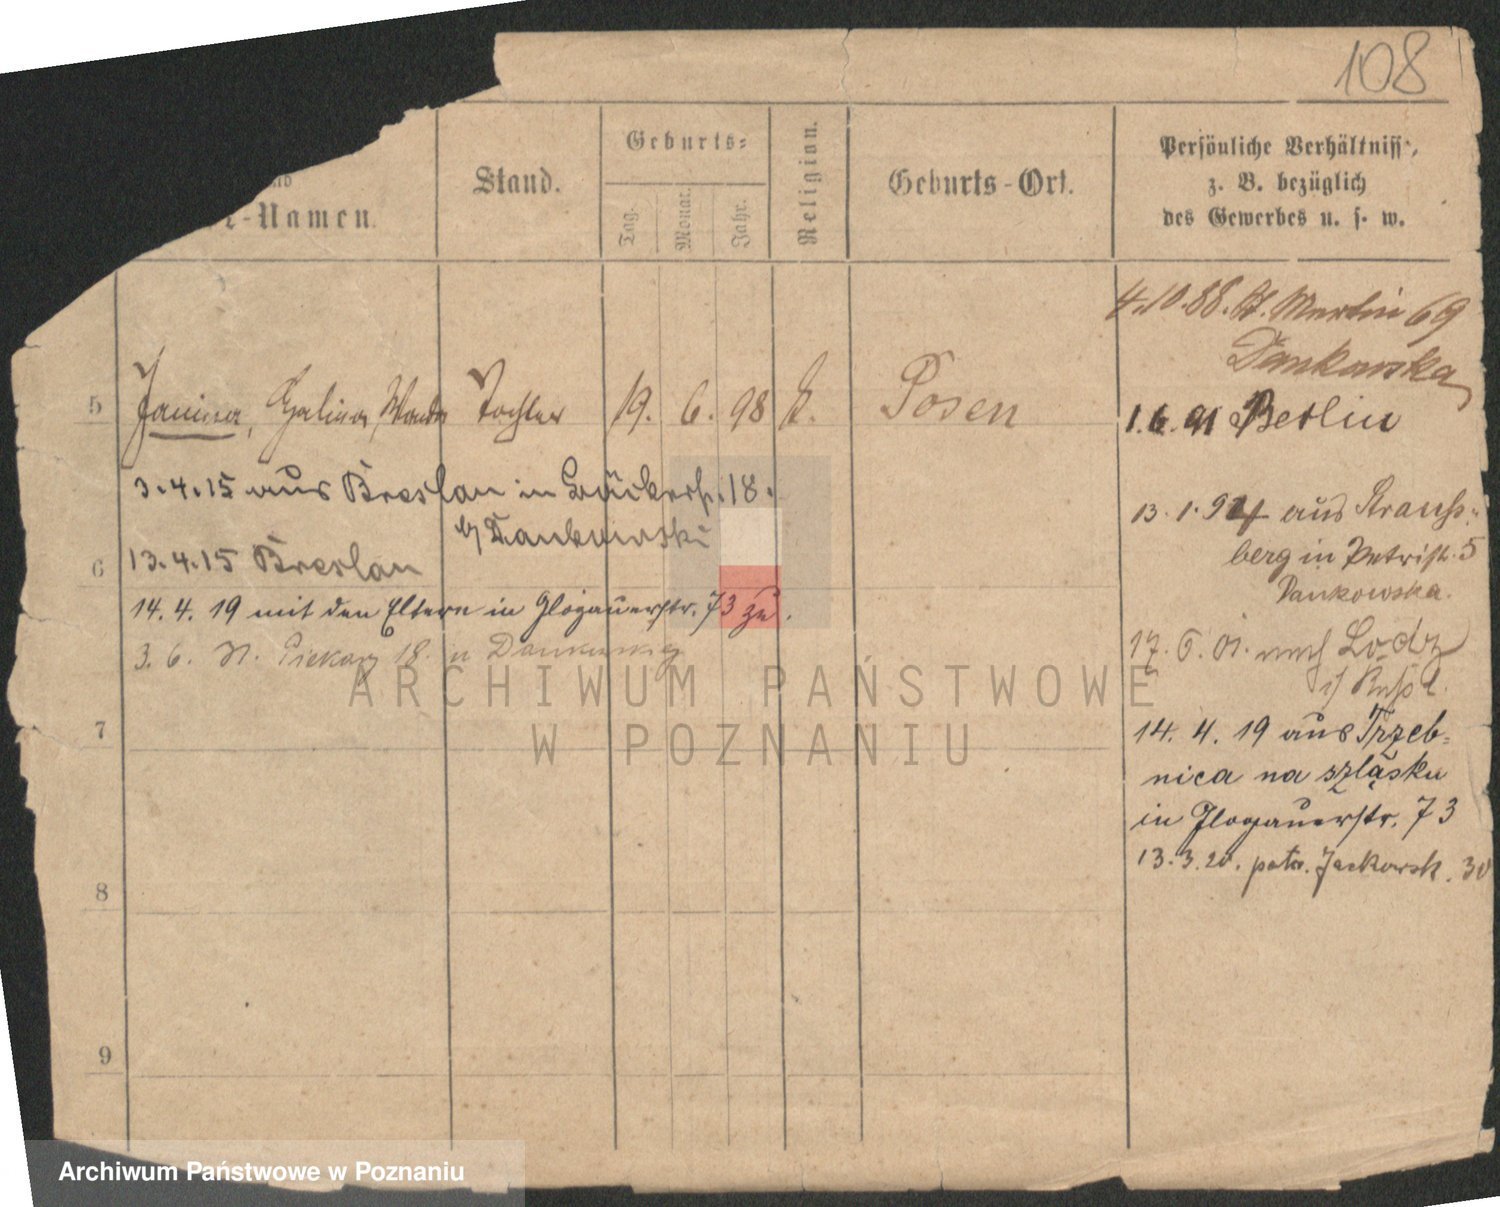 108
nd
r-Namen.
Stand.
Geburts=
Tag.
Monat.
Jahr.
Religion.
Geburts-Ort.
Persönliche Verhältnisse,
z. B. bezüglich
des Gewerbes u. s. w.
4.10.88. St. Martin 69
Dankowska
5 Janina, Halina, Wanda Tochter 19. 6. 98 k. Posen
1.6.91 Berlin
3.4.15 aus Breslau in Bäckerstr. 18.
b/ Dankowski
13.1.94 aus
berg in Petristr. 5
Dankowska.
6
13.4.15 Breslau
14.4.19 mit den Eltern in Glogauerstr. 73 zu.
3.6. Piekary 18.
17.6.01. nach Lodz
i/ Rußl.
14.4.19 aus Trzeb-
nica na szląsku
in Glogauerstr. 73
13.3.20. patr. Jackowsk. 30
7
8
9
ARCHIWUM PAŃSTWOWE
W POZNANIU
Archiwum Państwowe w Poznaniu